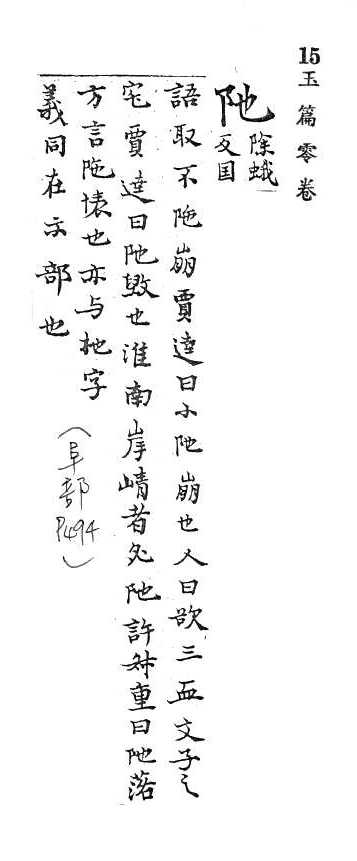 15 玉篇零卷
阤 除蛾反国
語取不陁崩賈逵曰小阤崩也又曰欲三孟文子之
宅賈逵曰阤毀也淮南岸崝者必阤許叔重曰阤落
方言陁壊也亦与杝字
義同在示部也
(阜部 P494)